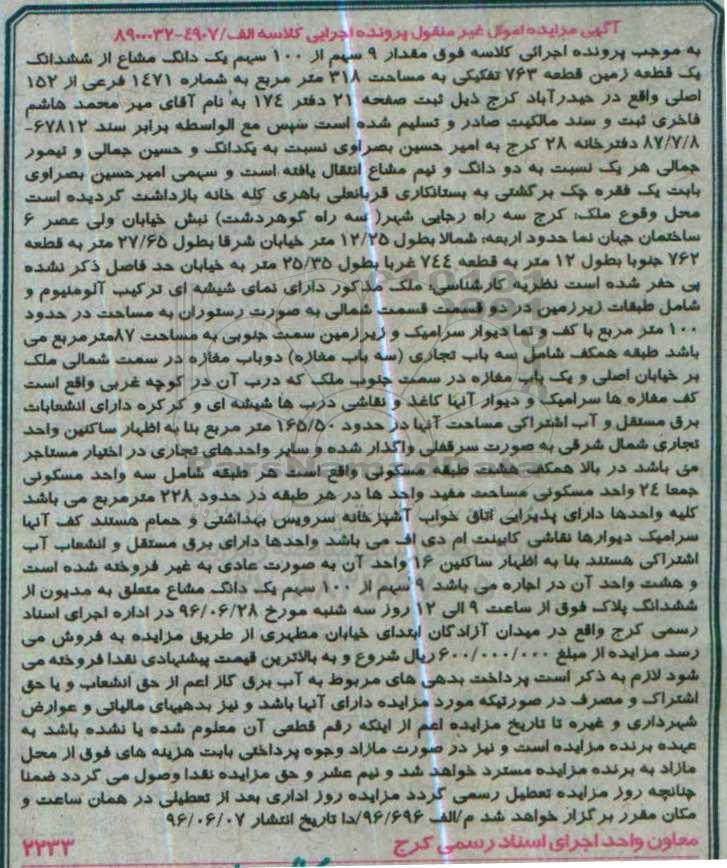 آگهی مزایده اموال غیر منقول پرونده اجرایی کلاسه الف/۸۹۰۰۰۳۲-۴۹۰۷
به موجب پرونده اجرائی کلاسه فوق مقدار ۹ سهم از ۱۰۰ سهم یک دانگ مشاع از ششدانگ
یک قطعه زمین قطعه ۷۶۳ تفکیکی به مساحت ۳۱۸ متر مربع به شماره ۱۴۷۱ فرعی از ۱۵۲
اصلی واقع در حیدرآباد کرج ذیل ثبت صفحه ۲۱ دفتر ۱۷۴ به نام آقای میر محمد هاشم
فاخری ثبت و سند مالکیت صادر و تسلیم شده است سپس مع الواسطه برابر سند ۶۷۸۱۲-
۸۷/۷/۸ دفترخانه ۲۸ کرج به امیر حسین بصراوی نسبت به یکدانگ و حسین جمالی و تیمور
جمالی هر یک نسبت به دو دانگ و نیم مشاع انتقال یافته است و سهمی امیرحسین بصراوی
بابت یک فقره چک برگشتی به بستانکاری قربانعلی باهری کله خانه بازداشت گردیده است
محل وقوع ملک: کرج سه راه رجایی شهر( سه راه گوهردشت) نبش خیابان ولی عصر ۶
ساختمان جهان نما حدود اربعه: شمالا بطول ۱۲/۲۵ متر خیابان شرقا بطول ۲۷/۶۵ متر به قطعه
۷۶۲ جنوبا بطول ۱۲ متر به قطعه ۷۴۴ غربا بطول ۲۵/۳۵ متر به خیابان حد فاصل ذکر نشده
پی حفر شده است نظریه کارشناسی: ملک مذکور دارای نمای شیشه ای ترکیب آلومنیوم و
شامل طبقات زیرزمین در دو قسمت قسمت شمالی به صورت رستوران به مساحت در حدود
۱۰۰ متر مربع با کف و نما دیوار سرامیک و زیرزمین سمت جنوبی به مساحت ۸۷مترمربع می
باشد طبقه همکف شامل سه باب تجاری (سه باب مغازه) دوباب مغازه در سمت شمالی ملک
بر خیابان اصلی و یک باب مغازه در سمت جنوب ملک که درب آن در کوچه غربی واقع است
کف مغازه ها سرامیک و دیوار آنها کاغذ و نقاشی درب ها شیشه ای و کرکره دارای انشعابات
برق مستقل و آب اشتراکی مساحت آنها در حدود ۱۶۵/۵۰ متر مربع بنا به اظهار ساکنین واحد
تجاری شمال شرقی به صورت سرقفلی واگذار شده و سایر واحدهای تجاری در اختیار مستاجر
می باشد در بالا همکف هشت طبقه مسکونی واقع است هر طبقه شامل سه واحد مسکونی
جمعا ۲۴ واحد مسکونی مساحت مفید واحد ها در هر طبقه در حدود ۲۲۸ مترمربع می باشد
کلیه واحدها دارای پذیرایی اتاق خواب آشپزخانه سرویس بهداشتی و حمام هستند کف آنها
سرامیک دیوارها نقاشی کابینت ام دی اف می باشد واحدها دارای برق مستقل و انشعاب آب
اشتراکی هستند بنا به اظهار ساکنین ۱۶ واحد آن به صورت عادی به غیر فروخته شده است
و هشت واحد آن در اجاره می باشد ۹ سهم از ۱۰۰ سهم یک دانگ مشاع متعلق به مدیون از
ششدانگ پلاک فوق از ساعت ۹ الی ۱۲ روز سه شنبه مورخ ۹۶/۰۶/۲۸ در اداره اجرای اسناد
رسمی کرج واقع در میدان آزادگان ابتدای خیابان مطهری از طریق مزایده به فروش می
رسد مزایده از مبلغ ۶۰۰/۰۰۰/۰۰۰ ریال شروع و به بالاترین قیمت پیشنهادی نقدا فروخته می
شود لازم به ذکر است پرداخت بدهی های مربوط به آب برق گاز اعم از حق انشعاب و یا حق
اشتراک و مصرف در صورتیکه مورد مزایده دارای آنها باشد و نیز بدهیهای مالیاتی و عوارض
شهرداری و غیره تا تاریخ مزایده اعم از اینکه رقم قطعی آن معلوم شده یا نشده باشد به
عهده برنده مزایده است و نیز در صورت مازاد وجوه پرداختی بابت هزینه های فوق از محل
مازاد به برنده مزایده مسترد خواهد شد و نیم عشر و حق مزایده نقدا وصول می گردد ضمنا
چنانچه روز مزایده تعطیل رسمی گردد مزایده روز اداری بعد از تعطیلی در همان ساعت و
مکان مقرر برگزار خواهد شد م/الف ۹۶/۶۹۶/دا تاریخ انتشار ۹۶/۰۶/۰۷
معاون واحد اجرای اسناد رسمی کرج ۲۲۳۳